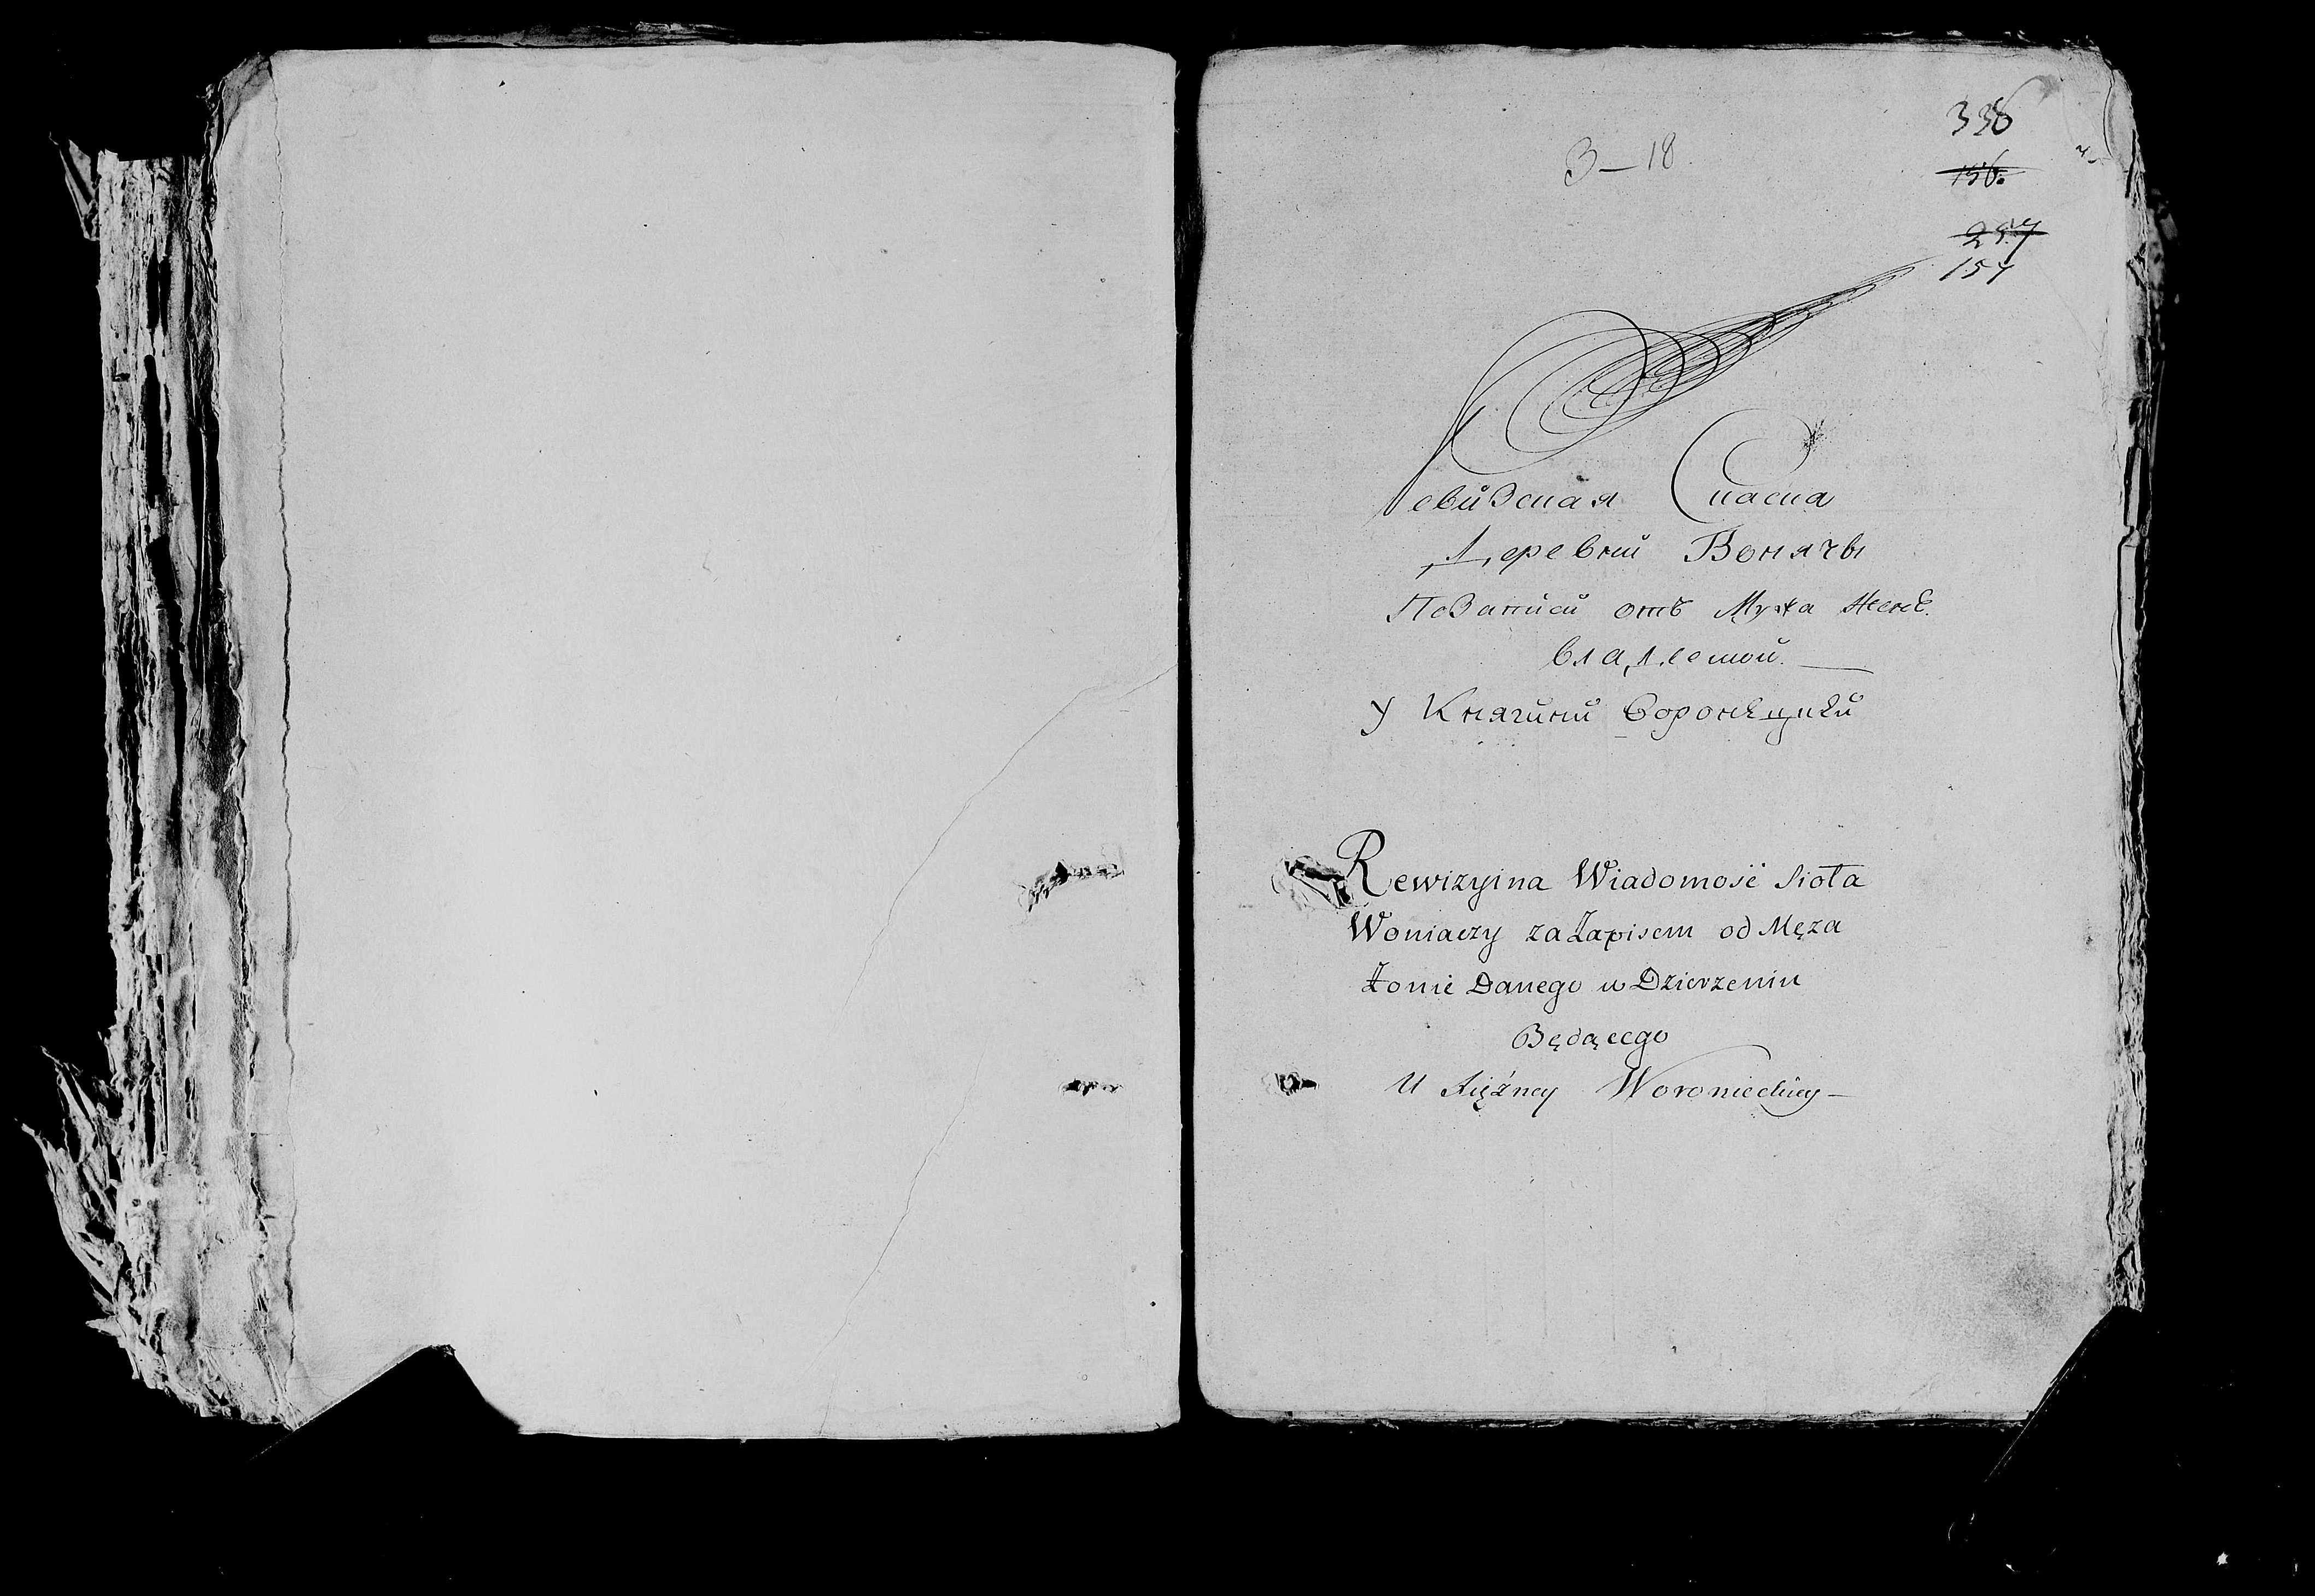 338
3—18
156.
257
157
Ревизская Сказка
Деревни Вонячы
По записи отъ Мужа Женѣ
владеемой.
У Княгини Воронѣцкѣй
Rewizyina Wiadomość Sioła
Woniaczy za Zapisem od Męza
Żonie Danego w Dzierzeniu
Będącego
U Xiężney Woronieckiey